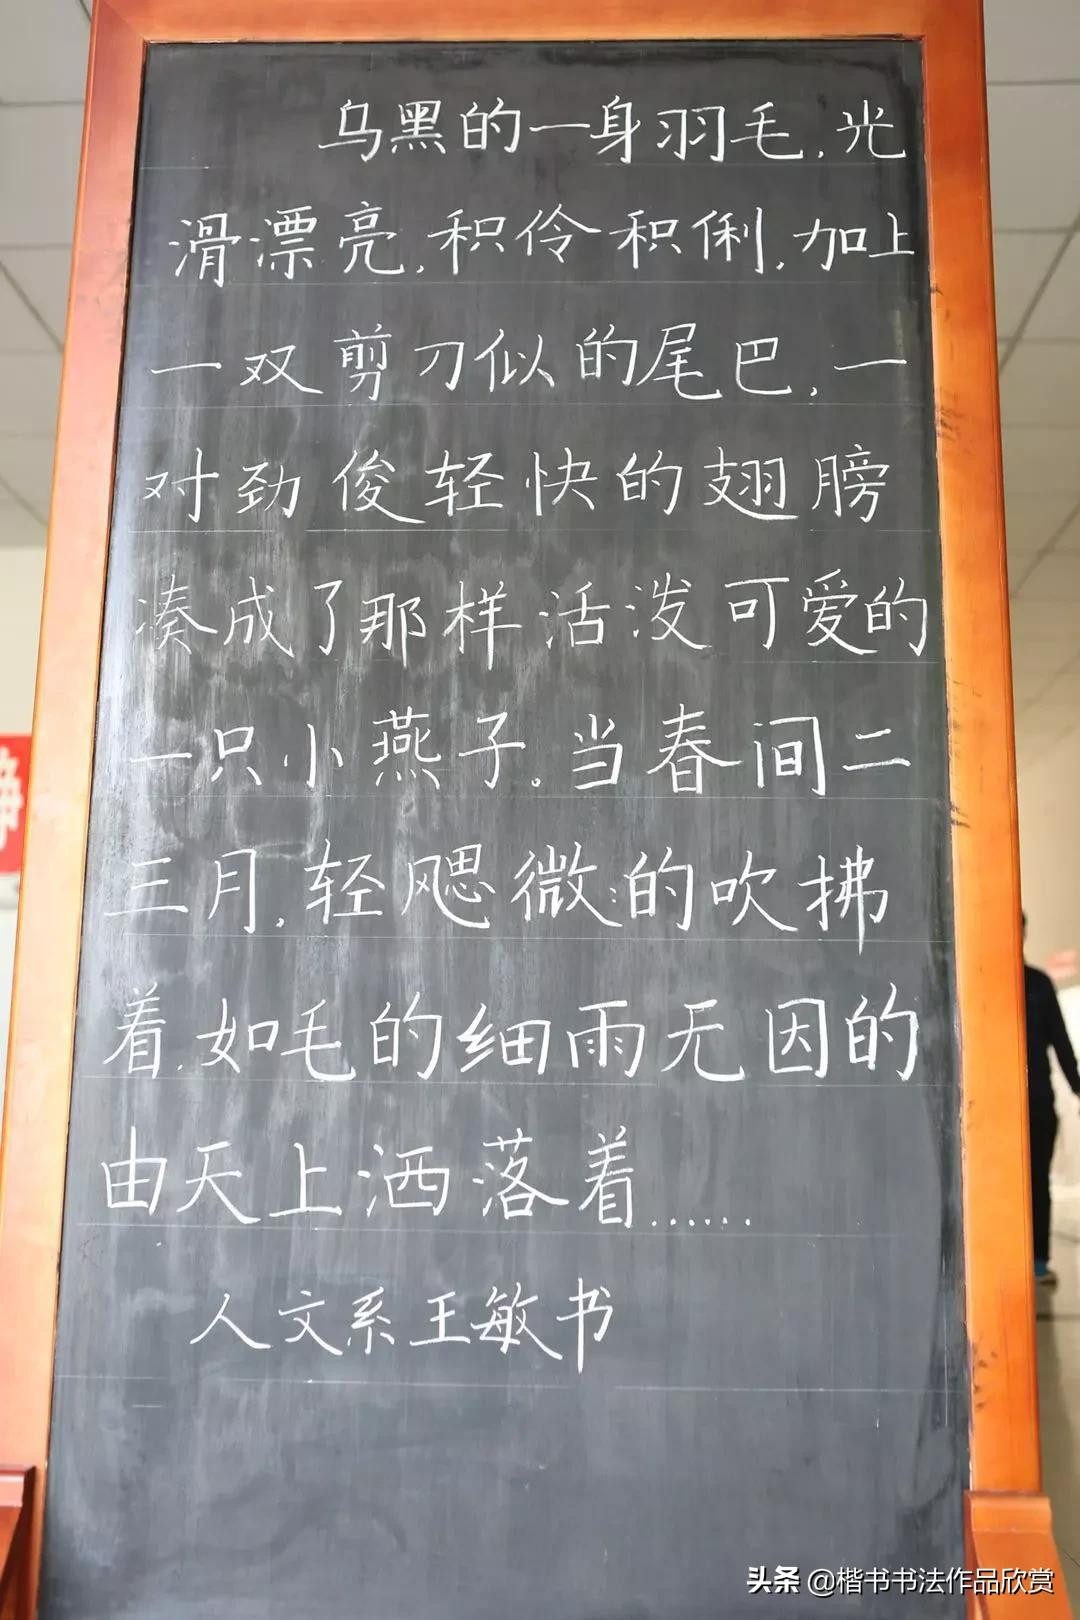 乌黑的一身羽毛,光
滑漂亮,积伶积俐,加上
一双剪刀似的尾巴,一
对劲俊轻快的翅膀
凑成了那样活泼可爱的
一只小燕子。当春间二
三月,轻飔微微的吹拂
着,如毛的细雨无因的
由天上洒落着……
人文系王敏书
静
头条 @楷书书法作品欣赏